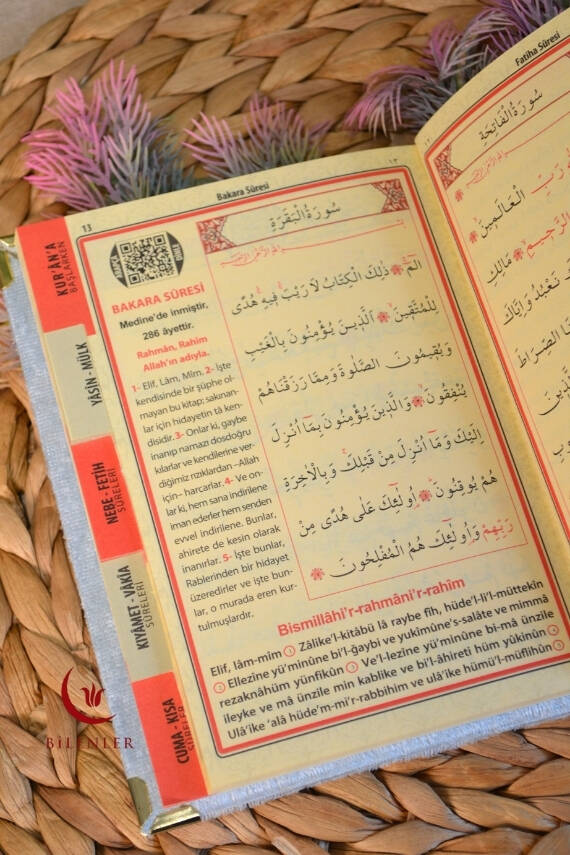 13
Bakara Sûresi
١٣
KUR'ÂN'A
BAŞLARKEN
YÂSÎN - MÜLK
NEBE - FETİH
SÛRELERİ
KIYÂMET - VÂKIA
SÛRELERİ
CUMA - KISA
SÛRELER
BAKARA SÛRESİ
Medine'de inmiştir,
286 âyettir.
Rahmân, Rahim
Allah'ın adıyla.
1- Elif, Lâm, Mîm. 2- İşte
kendisinde bir şüphe ol-
mayan bu kitap; sakınan-
lar için hidayetin tâ ken-
disidir. 3- Onlar ki, gaybe
inanıp namazı dosdoğru
kılarlar ve kendilerine ver-
diğimiz rızıklardan –Allah
için– harcarlar. 4- Ve on-
lar ki, hem sana indirilene
iman ederler hem senden
evvel indirilene. Bunlar,
ahirete de kesin olarak
inanırlar. 5- İşte bunlar,
Rablerinden bir hidayet
üzeredirler ve işte bun-
lar, o murada eren kur-
tulmuşlardır.
سُورَةُ الْبَقَرَةِ
الٓمٓ ذٰلِكَ الْكِتَابُ لَا رَيْبَ فِيهِ هُدًى
لِلْمُتَّقِينَ اَلَّذِينَ يُؤْمِنُونَ بِالْغَيْبِ
وَيُقِيمُونَ الصَّلٰوةَ وَمِمَّا رَزَقْنَاهُمْ
يُنْفِقُونَ وَالَّذِينَ يُؤْمِنُونَ بِمَٓا اُنْزِلَ
اِلَيْكَ وَمَٓا اُنْزِلَ مِنْ قَبْلِكَ وَبِالْاٰخِرَةِ
هُمْ يُوقِنُونَ اُو۬لٰٓئِكَ عَلٰى هُدًى مِنْ
رَبِّهِمْ وَاُو۬لٰٓئِكَ هُمُ الْمُفْلِحُونَ
Bismillâhi'r-rahmâni'r-rahîm
Elif, lâm-mîm 1 Zâlike'l-kitâbü lâ raybe fîh, hüde'l-li'l-müttekîn
2 Ellezîne yü'minûne bi'l-ğaybi ve yukîmûne's-salâte ve mimmâ
rezaknâhüm yünfikûn 3 Ve'l-lezîne yü'minûne bi-mâ ünzile
ileyke ve mâ ünzile min kablike ve bi'l-âhireti hüm yûkinûn 4
Ulâ'ike 'alâ hüde'm-mi'r-rabbihim ve ulâ'ike hümü'l-müflihûn 5
Fatiha Sûresi
سُورَةُ الْفَاتِحَةِ
الْعَالَمِينَ
مَالِكِ
نَعْبُدُ وَاِيَّاكَ
الصِّرَاطَ
BİLENLER